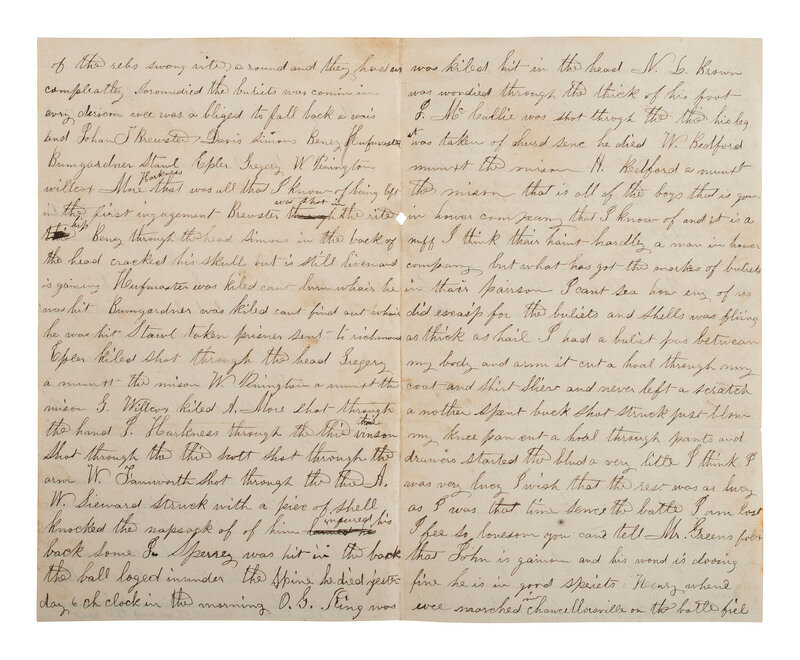 of the rebs swong rite around and they had us
compleatley Saroundid the bulits was comin in
evry diricon wee was a bliged to fall back a wais
and Johan T Brewster, Davis simons Beney Hufmaster
Bumgardner Stawl Epler Gregery W Pinington
Harkness
willcox More that was all that I know of being left
was shot in
in the first ingagement Brewster through the rite
hip Beney through the head simons in the back of
the head cracked his skull but is still liven and
is gaining Hufmaster was kiled cant lurn whair he
was hit Bumgardner was kiled cant find out whair
he was hit Stawl taken prisner sent to richmond
Epler killed shot through the head Gregery
a munxt the mison W Pinington a munxt the
mison G. Willcox kiled A. More shot through
the hand J. Harkness through the thie
shot through the thie Scott shot through the
arm W. Farnsworth shot through the thie A.
W. Sieward struck with a piece of shell
Knocked the napsack of of him injured his
back some J. Sperrey was hit in the back
the ball loged in under the spine he died yester
day 6 oh clock in the morning O. G. King was
was killed hit in the head N. L. Brown
was wondied through the thick of his foot
J. McCullie was shot throgh the thie his leg
was taken of & hurd senc he died W. Redford
munxt the mison H. Redford a munxt
the mison that is all of the boys that is gon
in hower company that I know of and it is a
nuff I think thair haint hardley a man in hower
company but what has got the markes of bulits
in thair parrson I cant sea how eny of us
did escaip for the bulits and shells was fliing
as thick as hail I had a bulit pas between
my body and arm it cut a hoal through my
coat and shirt Sliev and never left a scratch
a nother spent buck shot struck just below
my knee pan cut a hoal through pants and
drawers started the blud a very little I think I
was very lucy I wish that the rest was as lucy
as I was that time sence the battle I am lost
I fee so lonesom you can tell Mr. Greens folks
that John is gainon and his wond is dooing
fine he is in good speirts. Henry when
wee marched in chancellorsville on the battle fiel